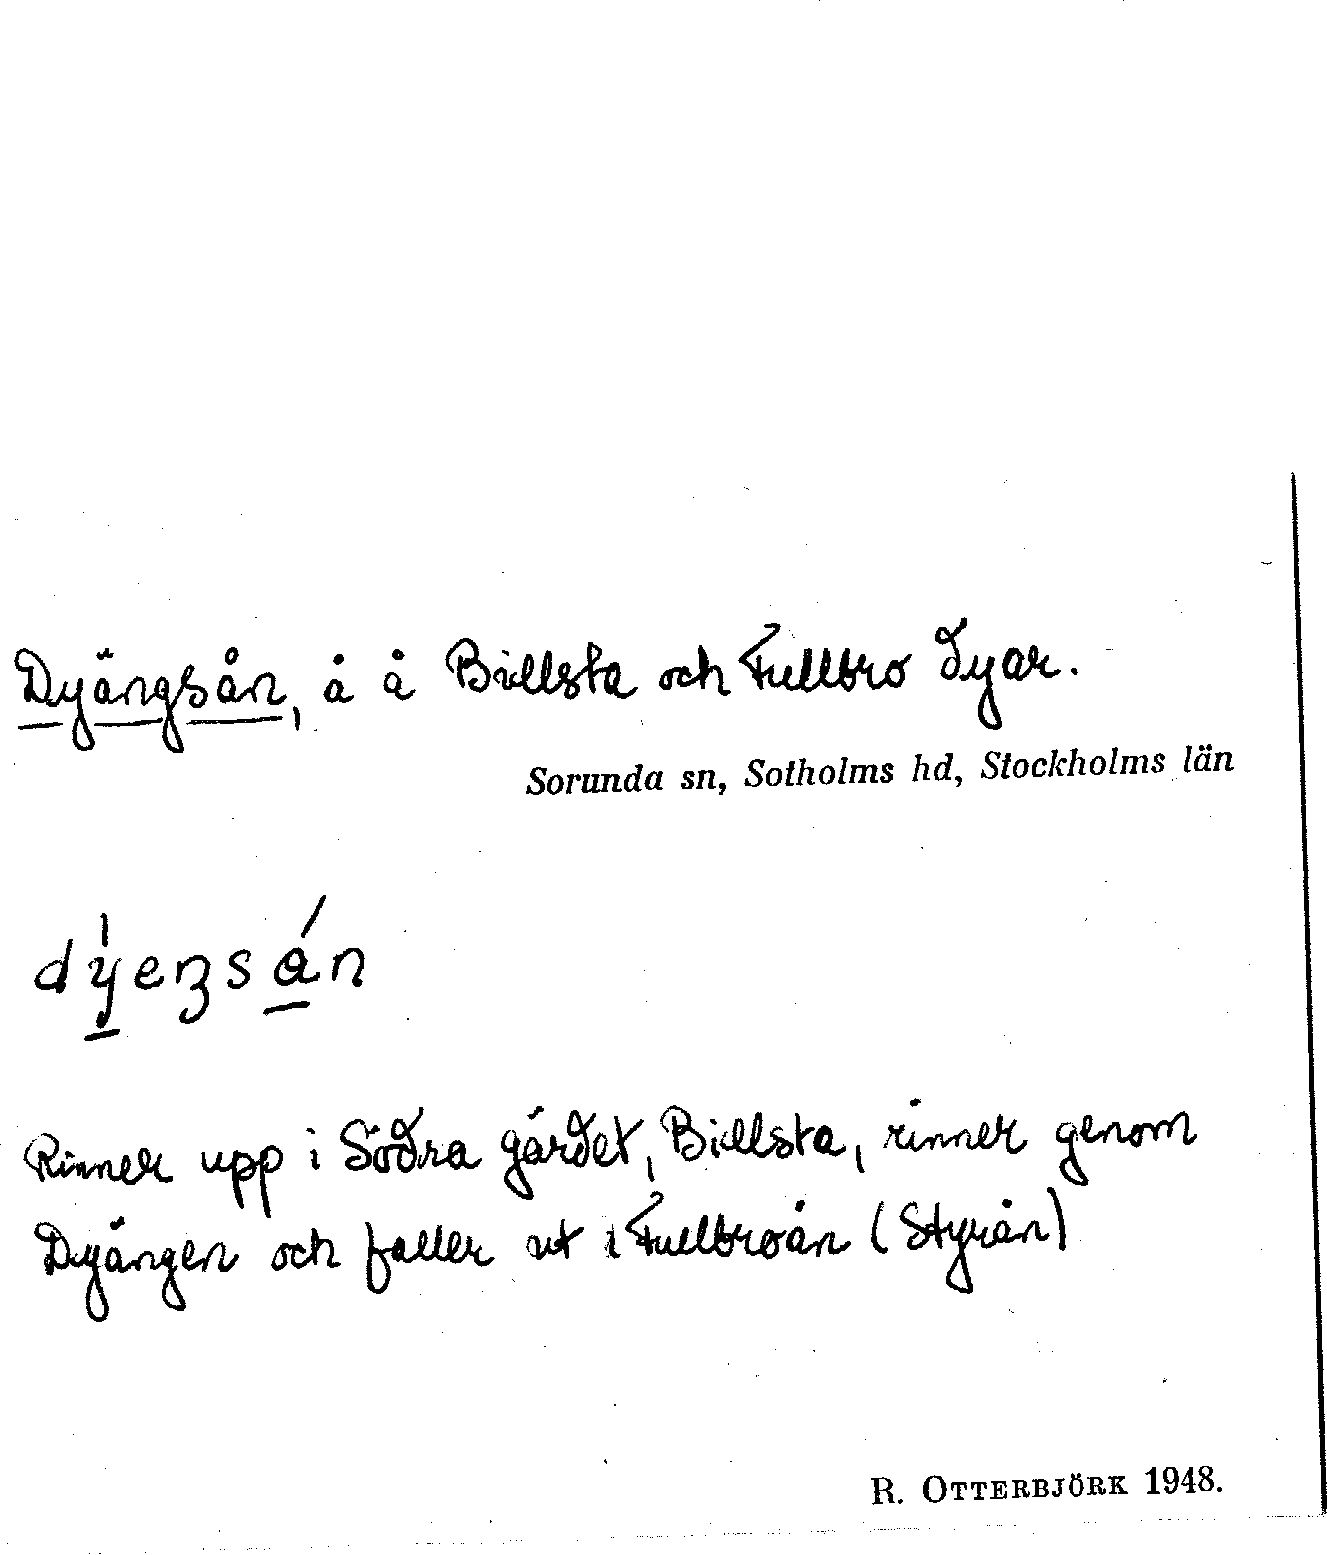 Dyängsån, å å Billsta och Fullbro dyar.
Sorunda sn, Sotholms hd, Stockholms län
dýeŋsán
Rinner upp i Södra gärdet, Billsta, rinner genom
Dyängen och faller ut i Fullbroån (Styrån)
R. OTTERBJÖRK 1948.